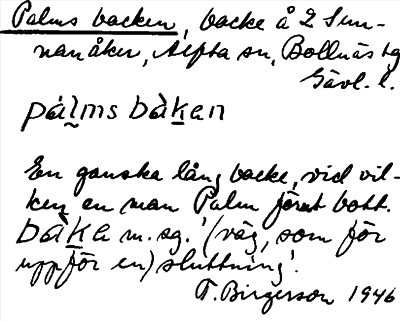 Palms backen, backe å L Sun-
nanåker, Alfta sn, Bollnäs tg
Gävl. l.
pálms bàḵan
En ganska lång backe, vid vil-
ken en man Palm förut bott.
bàḵa m. sg. '(väg, som för
uppför en) sluttning'.
T. Birgerson 1946